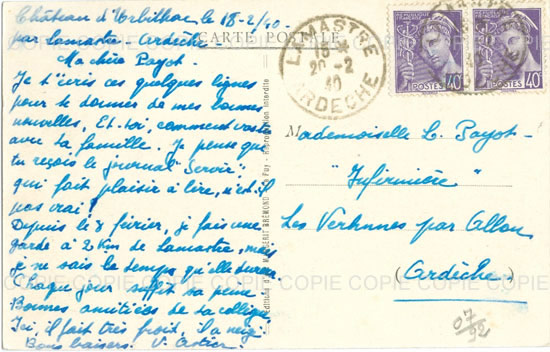 Château d'Urbilhac le 18-2/40
par Lamastre Ardèche
CARTE POSTALE
Ma chère Payot.
Je t'écris ces quelques lignes
pour te donner de mes bonnes
nouvelles, Et toi, comment vas-tu
avec ta famille. Je pense que
tu reçois le journal "Servir",
qui fait plaisir à lire, n'est-il
pas vrai?
Depuis le 8 février, je fais une
garde à 2 km de Lamastre, mais
je ne sais le temps qu'elle durera
Chaque jour suffit sa peine
Bonnes amitiées de ta collègue
Ici, il fait très froid, il a neigé.
Bons baisers. V.
LAMASTRE
15 *
20-2
40
ARDECHE
POSTES 40
POSTES 40
Reproduction interdite
Mademoiselle L. Payot
"Infirmière"
Les par
(Ardèche)
07/92
COPIE COPIE COPIE COPIE COPIE COPIE COPIE